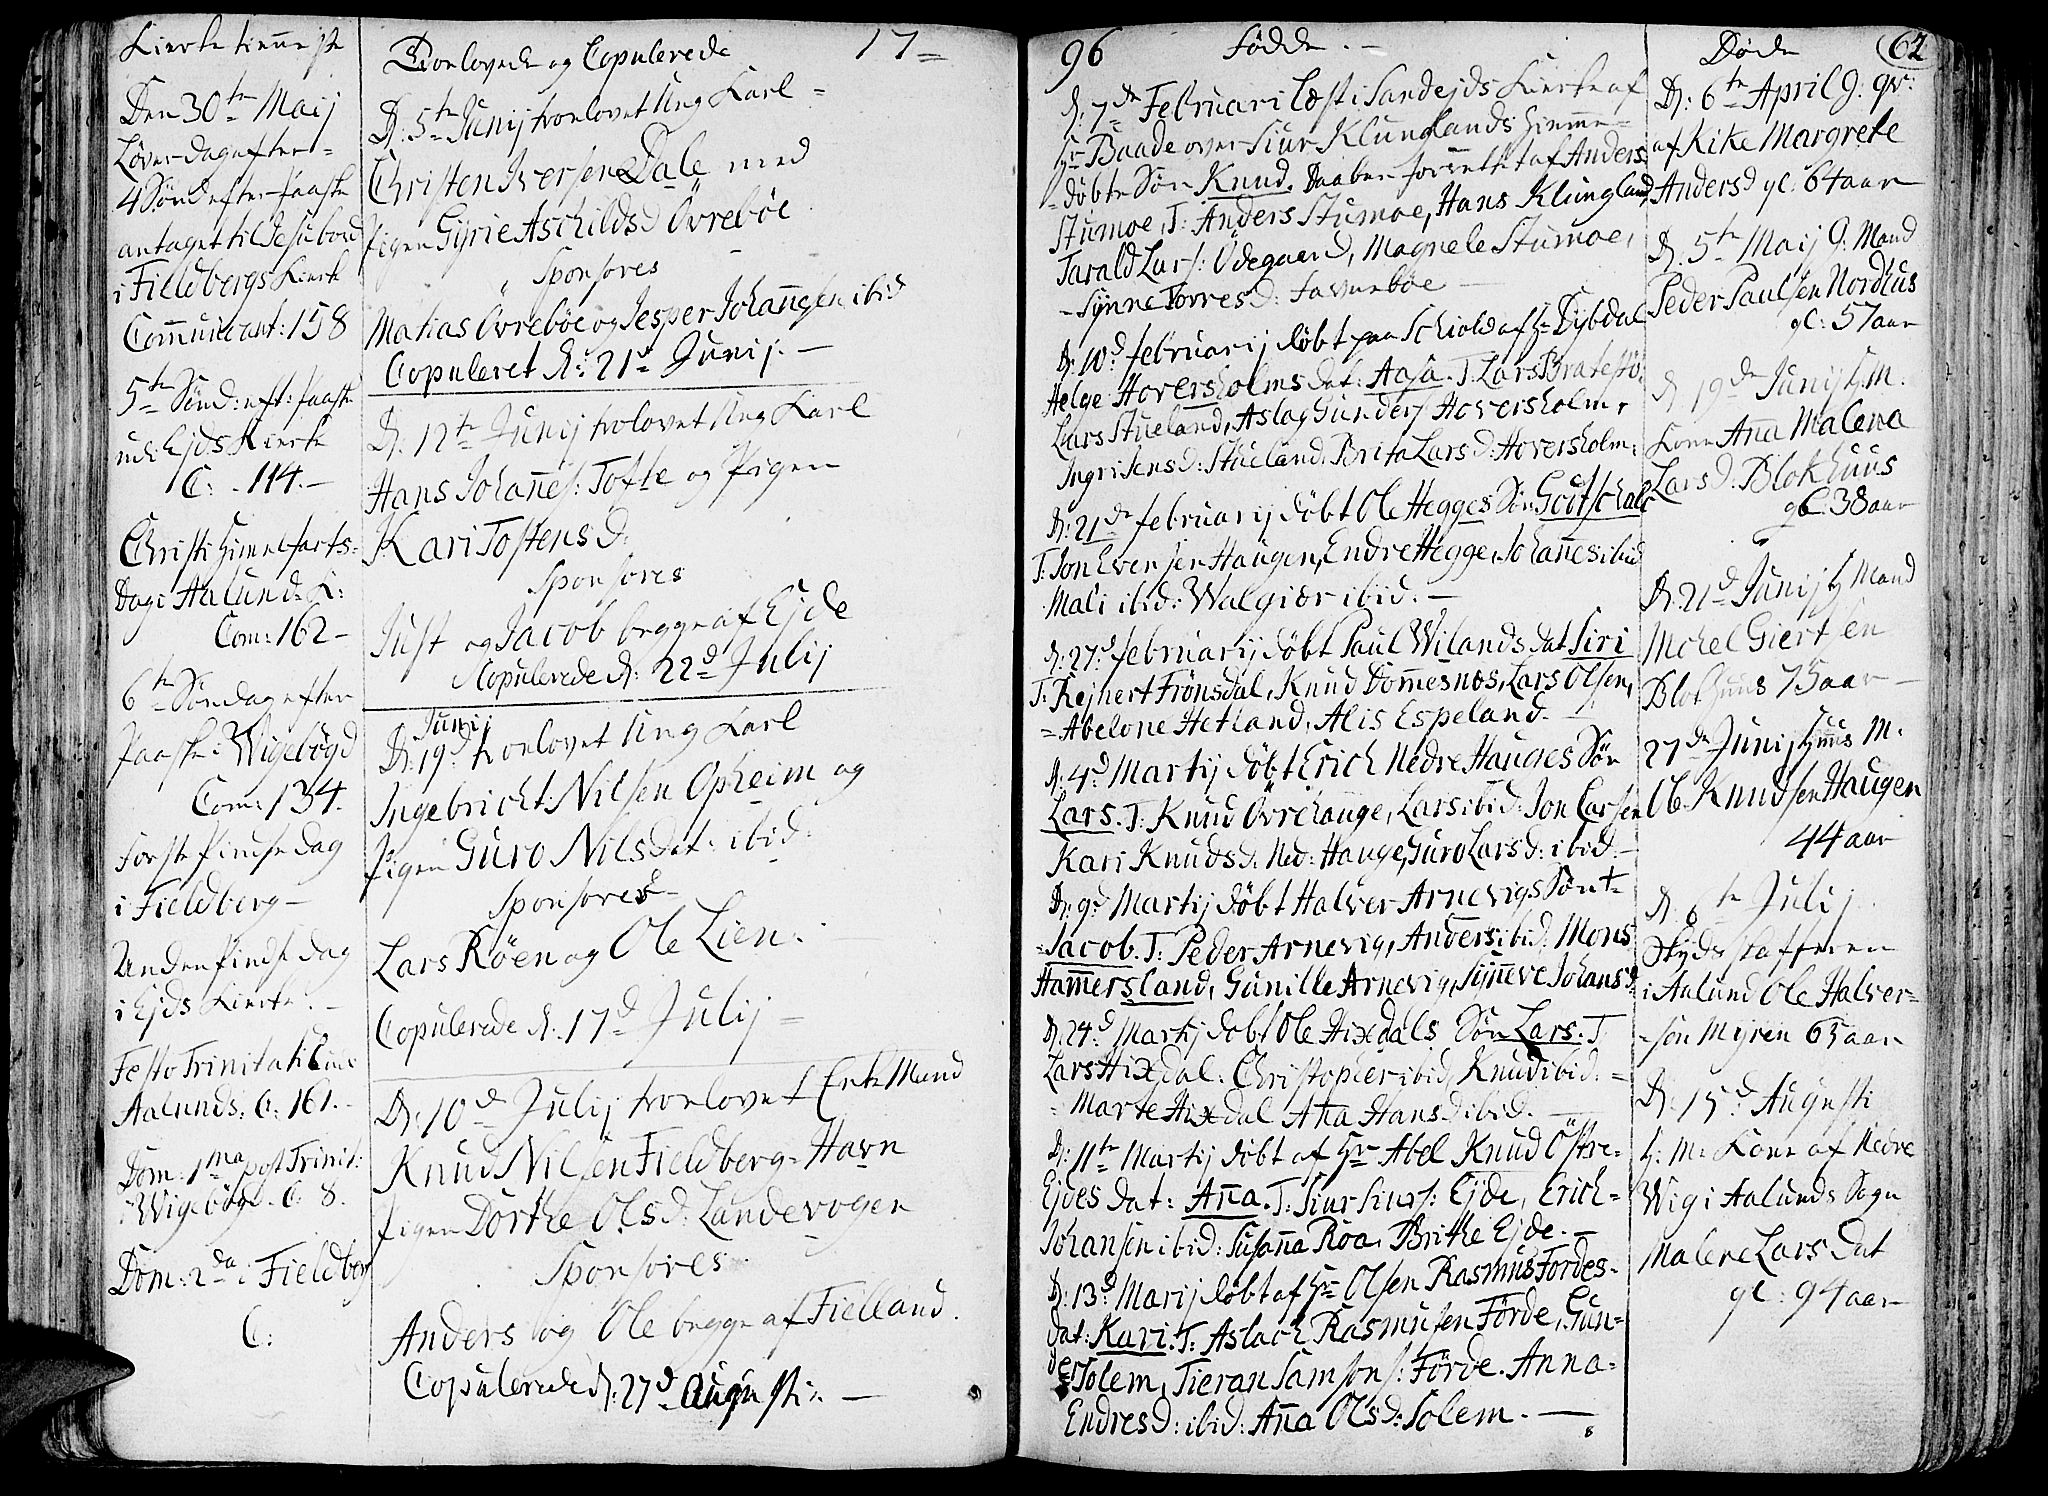 Kierke tienneste
Den 30te Maij
Løverdag efter
4 Sønd efter Paaske
antaget til Jesu bord
i Fieldbergs Kierke
Com̄unicant: 158
5te Sönd: eft: Paaske
udi Ejds Kierke
C: 114.
Christi Himmelfarts-
Dag i Aalunds K:
Com: 162
6te Søndag efter
Paaske i Wigebögd
Com: 134.
Første Pindse dag
i Fieldberg
Anden Pindse dag
i Ejds Kierke.
Festo Trinitatis
Aalunds. C: 161.
Dom: 1ma post Trinit:
i Wigebögd. C: 8.
Dom: 2da i Fieldberg
C:
Troelovede og Copulerede 17=
D: 5te Junij troelovet Ung Karl
Christen Iversen Dale med
Pigen Gyrie Aschildsd Övrebøe
Sponsores
Matias Övrebøe og Jesper Johan̄esen ibid
Copuleret D: 21d Junij. —
D: 12te Junij trolovet Ung Karl
Hans Johan̄es: Tofte og Pigen
Kari Tostensd:
Sponsores
Just og Jacob begge af Ejde
Copulerede d: 22d Julij
Junij
D: 19d troelovet Ung Karl
Ingebricht Nilsen Opheim og
Pigen Guro Nilsdat: ibid:
Sponsores
Lars Röen og Ole Lien.
Copulerede d: 17d Julij
D: 10d Julij troelovet Enke Mand
Knud Nilsen Fieldberg-Havn
Pigen Dorthe Olsd: Landevogen
Sponsores
Anders og Ole begge af Fielland.
Copulerede d: 27d Augusti. —
96 Födde. 62
D: 7de Februari Læst i Sandejds Kierke af
Hr Baade over Siur Klunglands hiemme-
döbte Sön Knud. Daaben forrettet af Anders
Stumoe, T: Anders Stumoe, Hans Klungland,
Tarald Lars: Ödegaard, Magnele Stumoe,
Synne Torresd:
D: 10d februarij döbt paa Schiold af Hr Dybdal
Helge Hoversholms dat: Aasa. T. Lars Bratestö,
Lars Stueland, Aslag Gunders Hoversholm,
Ingri Jensd: Stueland. Brita Larsd: Hoversholm.
D: 21de februarij döbt Ole Hegges Sön Godtschalk
T: Jon Evensen Haugen, Endre Hegge, Johan̄es ibid
Mali ibid: Walgiör ibid. —
D: 27d februarij döbt Paul Wilands dat Siri
T: Rejhert Frönsdal, Knud Dom̄esnes, Lars Olsen,
Abelone Hetland, Alis Espeland. —
D: 4d Martij döbt Erich Nedre Hauges Sön
Lars. T: Knud Övrehauge, Lars ibid: Jon Larsen
Kari Knudsd: Ned: Hauge, Guro Larsd: ibid. —
D: 9d Martij döbt Halver Arnevigs Sön
Jacob. T: Peder Arnevig, Anders ibid: Mons
Ham̄ersland, Gunille Arnevig, Syn̄eve Johansd
D: 24d Martij döbt Ole Hixdals Sön Lars. T
Lars Hixdal: Christopher ibid, Knud ibid: —
Marte Hixdal An̄a Hansd ibid. —
D: 11te Martij döbt af Hr Abel Knud Östre
Ejdes dat: An̄a. T: Siur Siurs: Ejde, Erich
Johansen ibid: Susan̄a Roa. Brithe Ejde. —
D: 13d Marij döbt af Hr Olsen Rasmus Fördes
dat: Kari. T: Aslach Rasmusen Förde, Gun-
der Solem, Tieran Samsons: Förde. Anna
Endresd: ibid: An̄a Olsd: Solem. —
Döde
D: 6te April g: qv:
af Kike Margrete
Andersd gl: 64 aar
D: 5te Maij G: Mand
Peder Paulsen Nordhus
gl: 57 aar
D 19de Junij H: M.
Kone An̄a Malena
Larsd: Blokhuus
gl: 38 aar
D: 21d Junij H Mand
Michel Giertsen
Blokhuus 75 aar
27de Junij Huus M.
Ole Knudsen Haugen
44 aar
D. 6te Julij
Skydsskafferen
i Aalund Ole Halver-
sön Myren 65 aar
D: 15d Augusti
H: M: Kone af Nedre
Wig i Aalunds Sogn
Malene Lars dat
gl: 94 aar